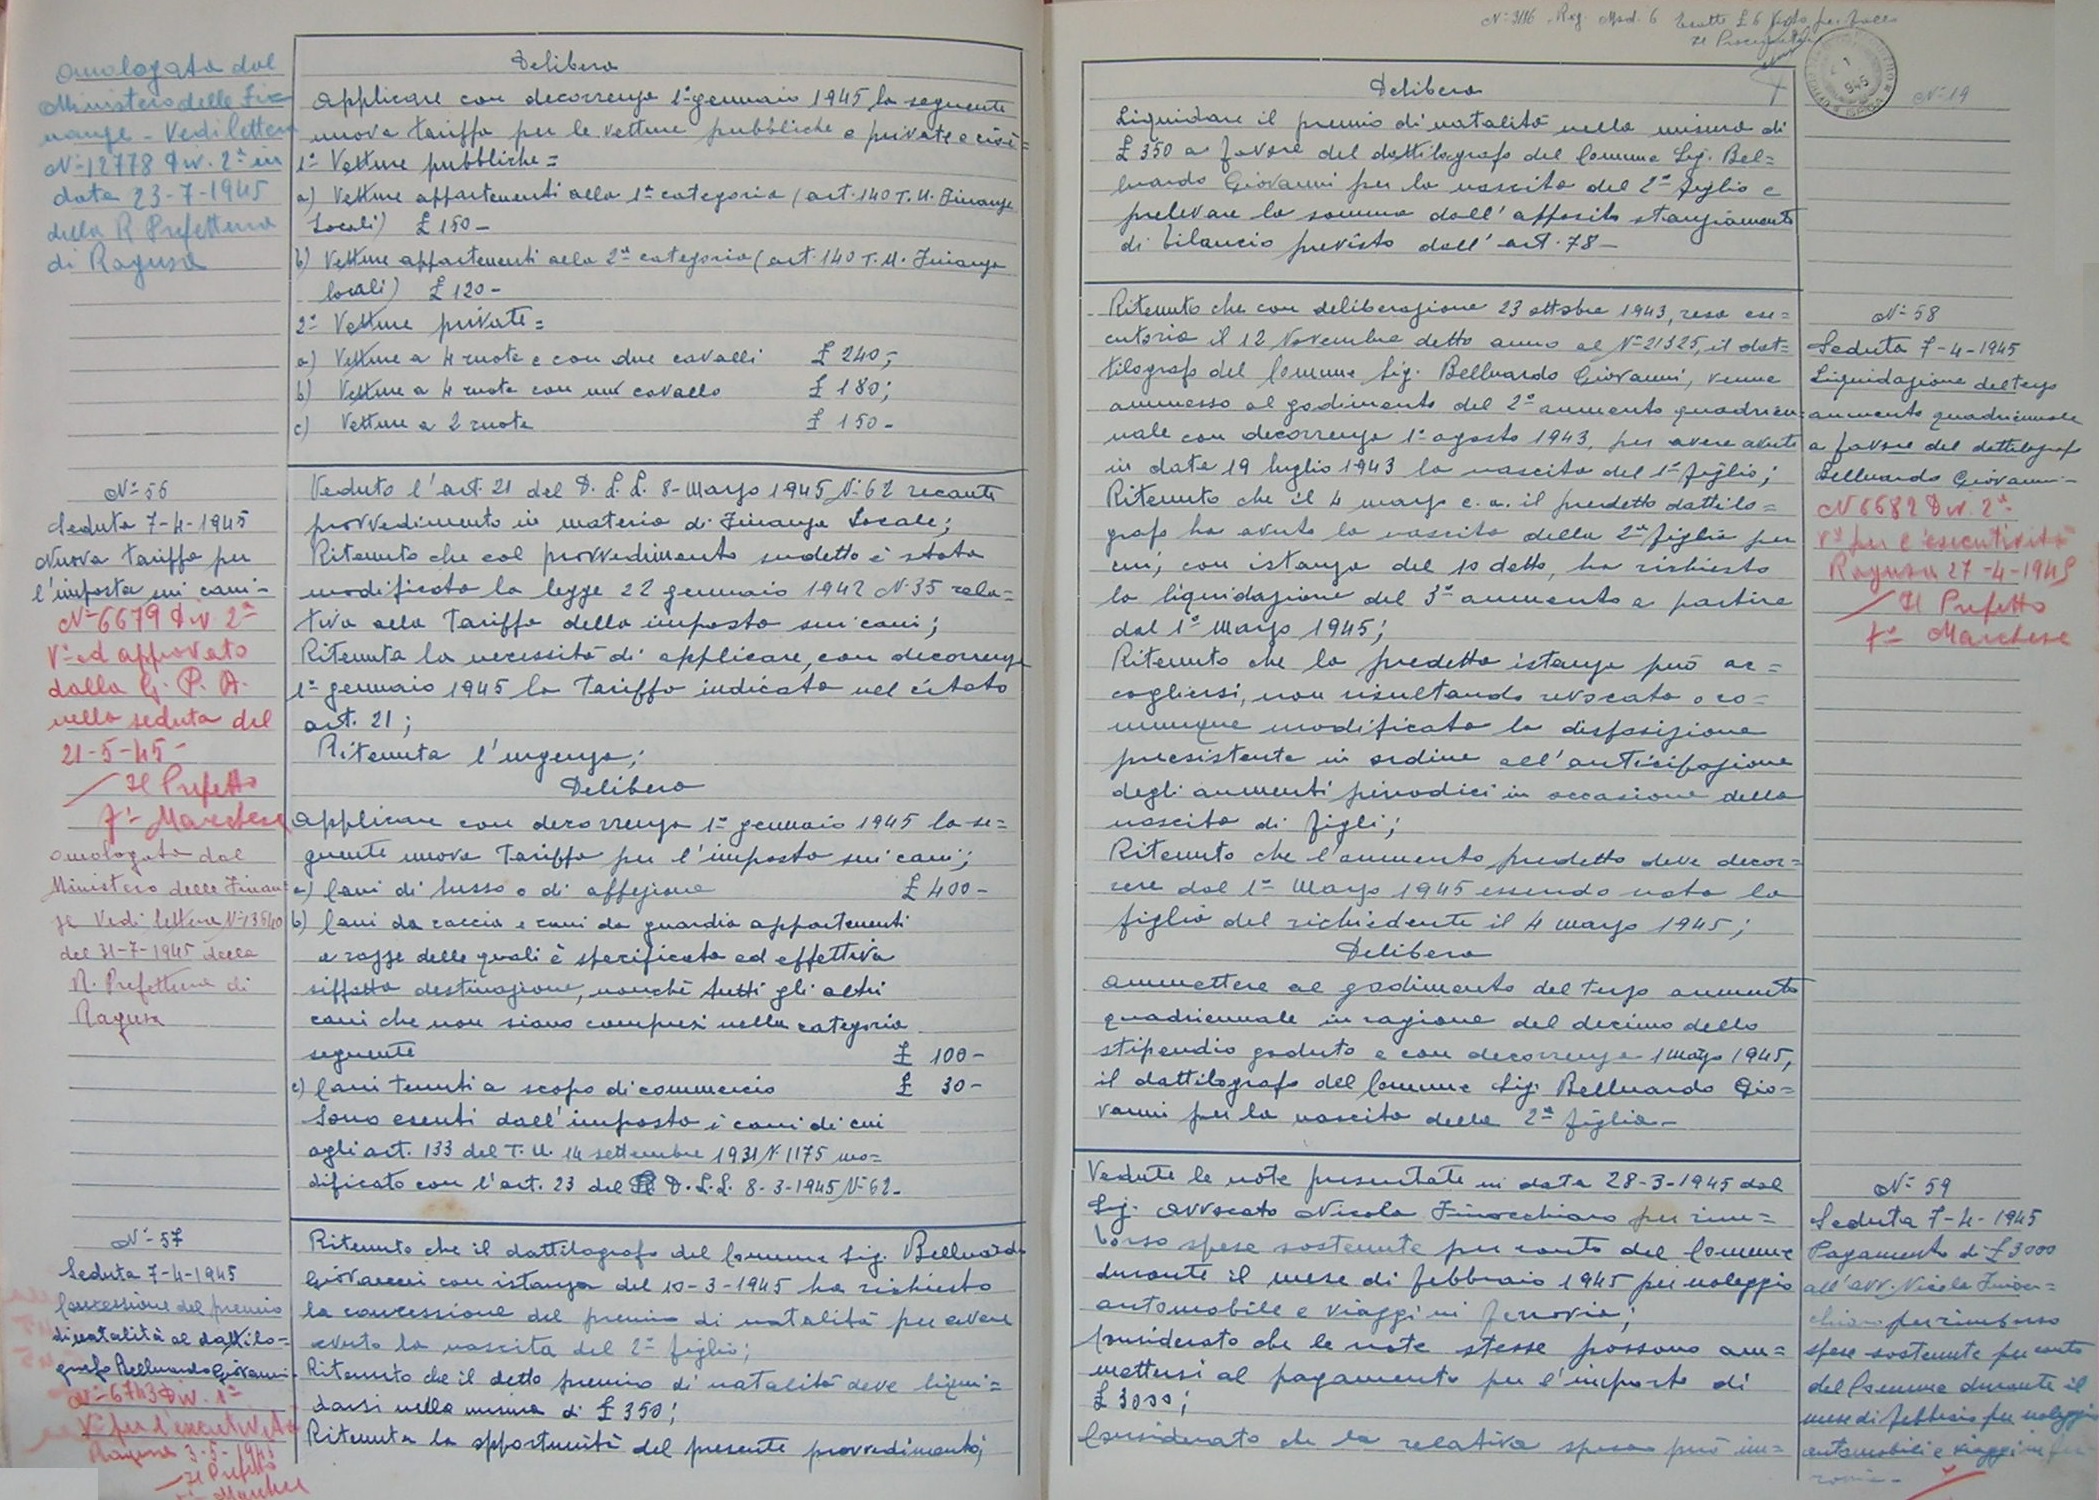 Omologata dal
Ministero delle Fi-
nanze - Vedi lettera
N° 12778 Div. 2ª in
data 23-7-1945
della R. Prefettura
di Ragusa
Delibera
Applicare con decorrenza 1° gennaio 1945 la seguente
nuova tariffa per le vetture pubbliche e private e cioè =
1° Vetture pubbliche =
a) Vetture appartenenti alla 1ª categoria (art. 140 T. U. Finanza
Locali) £ 150 -
b) Vetture appartenenti alla 2ª categoria (art. 140 T. U. Finanza
locali) £ 120 -
2° Vetture private =
a) Vetture a 4 ruote e con due cavalli £ 240 ;
b) Vetture a 4 ruote con un cavallo £ 180 ;
c) Vetture a 2 ruote £ 150 -
N° 56
Seduta 7-4-1945
Nuova tariffa per
l'imposta sui cani -
N° 6679 Div 2ª
V° ed approvato
dalla G. P. A.
nella seduta del
21-5-45 -
Il Prefetto
F° Marchese
Omologata dal
Ministero delle Finan
ze Vedi lettera N° 13540
del 31-7-1945 della
R. Prefettura di
Ragusa
Veduto l'art. 21 del D. L. L. 8 - Marzo 1945 N° 62 recante
provvedimento in materia di Finanza Locale ;
Ritenuto che col provvedimento sudetto è stata
modificata la legge 22 gennaio 1942 N° 35 rela=
tiva alla tariffa della imposta sui cani ;
Ritenuta la necessità di applicare, con decorrenza
1° gennaio 1945 la tariffa indicata nel citato
art. 21 ;
Ritenuta l'urgenza ;
Delibera
Applicare con decorrenza 1° gennaio 1945 la se=
guente nuova tariffa per l'imposta sui cani ;
a) Cani di lusso o di affezione £ 400 -
b) Cani da caccia e cani da guardia appartenenti
a razze delle quali è specificata ed effettiva
siffatta destinazione, nonché tutti gli altri
cani che non siano compresi nella categoria
seguente £ 100 -
c) Cani tenuti a scopo di commercio £ 30 -
Sono esenti dall'imposta i cani di cui
agli art. 133 del T. U. 14 settembre 1931 N° 1175 mo=
dificato con l'art. 23 del D. L. L. 8-3-1945 N° 62 -
N° 57
Seduta 7-4-1945
Concessione del premio
di natalità al dattilo=
grafo Belluardo Giovanni
N° 6743 Div. 1ª
V° per l'esecutività
Ragusa 3-5-1945
Il Prefetto
F° Marchese
Ritenuto che il dattilografo del Comune Sig. Belluardo
Giovanni con istanza del 10-3-1945 ha richiesto
la concessione del premio di natalità per avere
avuto la nascita del 2° figlio ;
Ritenuto che il detto premio di natalità deve liqui=
darsi nella misura di £ 350 ;
Ritenuta la opportunità del presente provvedimento ;
N° 3116 Reg. Mod. 6 Esatte £ 6
Il Procuratore
1945
N° 19
Delibera
Liquidare il premio di natalità nella misura di
£ 350 a favore del dattilografo del Comune Sig. Bel=
luardo Giovanni per la nascita del 2° figlio e
prelevare la somma dall'apposito stanziamento
di bilancio previsto dall'art. 78 -
Ritenuto che con deliberazione 23 ottobre 1943, resa ese=
cutoria il 12 Novembre detto anno al N° 21325, il dat=
tilografo del Comune Sig. Belluardo Giovanni, venne
ammesso al godimento del 2° aumento quadrien=
nale con decorrenza 1° agosto 1943, per avere avuto
in data 19 luglio 1943 la nascita del 1° figlio ;
Ritenuto che il 4 marzo c. a. il predetto dattilo=
grafo ha avuto la nascita della 2ª figlia per
cui, con istanza del 10 detto, ha richiesto
la liquidazione del 3° aumento a partire
dal 1° Marzo 1945 ;
Ritenuto che la predetta istanza può ac=
cogliersi, non risultando revocata o co=
munque modificata la disposizione
preesistente in ordine all'anticipazione
degli aumenti periodici in occasione della
nascita di figli ;
Ritenuto che l'aumento predetto deve decor=
rere dal 1° Marzo 1945 essendo nata la
figlia del richiedente il 4 marzo 1945 ;
Delibera
Ammettere al godimento del terzo aumento
quadriennale in ragione del decimo dello
stipendio goduto e con decorrenza 1 marzo 1945,
il dattilografo del Comune Sig. Belluardo Gio=
vanni per la nascita della 2ª figlia -
N° 58
Seduta 7-4-1945
Liquidazione del terzo
aumento quadriennale
a favore del dattilografo
Belluardo Giovanni -
N 6682 Div. 2ª
V° per l'esecutività
Ragusa 27-4-1945
Il Prefetto
F° Marchese
Vedute le note presentate in data 28-3-1945 dal
Sig. Avvocato Nicola Finocchiaro per rim=
borso spese sostenute per conto del Comune
durante il mese di febbraio 1945 per noleggio
automobile e viaggi in ferrovia ;
Considerato che le note stesse possono am=
mettersi al pagamento per l'importo di
£ 3000 ;
Considerato che la relativa spesa può im=
N° 59
Seduta 7-4-1945
Pagamento di £ 3000
all'avv. Nicola Finoc=
chiaro per rimborso
spese sostenute per conto
del Comune durante il
mese di febbraio per noleggio
automobili e viaggi in fer
rovia -